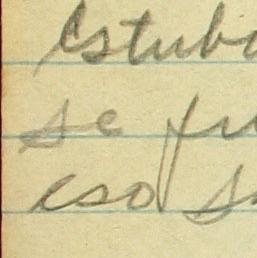 Estuba
se fu
eso s